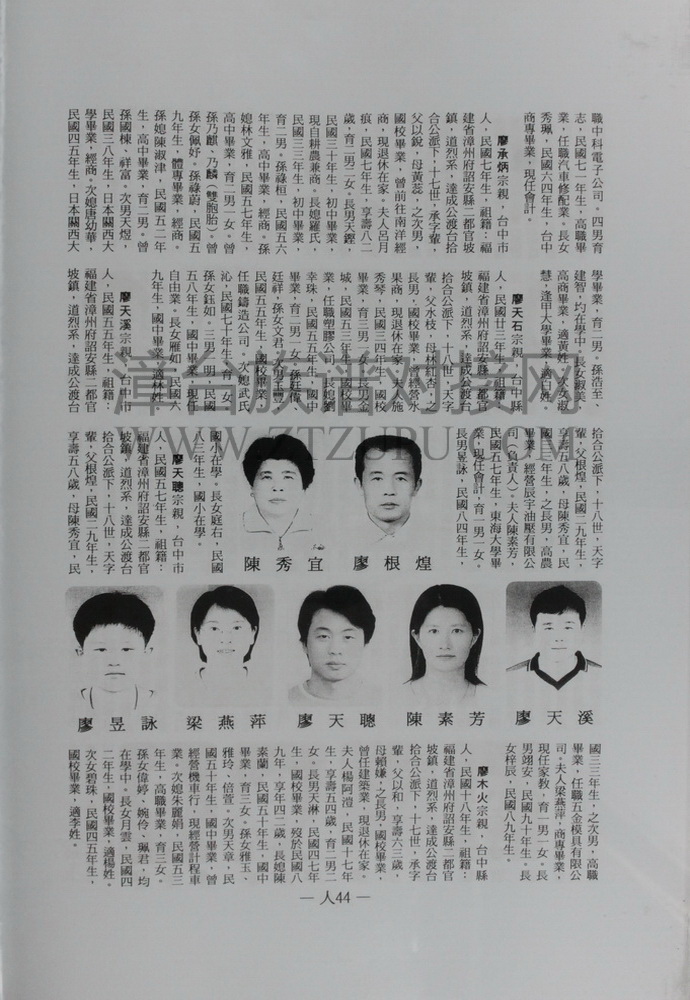 職中科電子公司。四男育
志，民國七一年生，高職畢
業，任職汽車修配業。長女
秀珮，民國六四年生，台中
商專畢業，現任會計。
廖承炳宗親，台中市
人，民國七年生，祖籍：福
建省漳州府詔安縣二都官坡
鎮，道烈系，達成公渡台拾
合公派下，十七世，承字輩，
父以銳，母黃蕊，之次男，
國校畢業，曾前往南洋經
商，現退休在家。夫人呂月
痕，民國七年生，享壽八二
歲，育二男二女。長男天鏗，
民國三十年生，初中畢業，
現自耕農兼商。長媳羅氏，
民國三三年生，初中畢業，
育二男。孫祿桓，民國五六
年生，高中畢業，經商。孫
媳林文雅，民國五七年生，
高中畢業，育二男一女。曾
孫乃麒、乃麟（雙胞胎）。曾
孫女佩妤。孫祿蔚，民國五
九年生，體專畢業，經商。
孫媳陳淑津，民國五二年
生，高中畢業，育二男。曾
孫國棟、祥富。次男天煜，
民國三八年生，日本關西大
學畢業，經商。次媳唐幼華，
民國四五年生，日本關西大
學畢業，育二男。孫浩至、
建智，均在學中。長女淑美，
高商畢業，適黃姓。次女淑
慧，逢甲大學畢業，適白姓。
廖天石宗親，台中縣
人，民國廿三年生，祖籍：
福建省漳州府詔安縣二都官
坡鎮，道烈系，達成公渡台
拾合公派下，十八世，天字
輩，父水枝，母林紅杏，之
長男，國校畢業，曾經營水
果商，現退休在家。夫人施
秀琴，民國三四年生，國校
畢業，育三男一女。長男金
城，民國五三年生，國校畢
業，任職塑膠公司。長媳劉
幸珠，民國五五年生，國中
畢業，育二男一女。孫廷偉、
廷祥，孫女文君。次男玉豐，
民國五五年生，國校畢業，
任職鑄造公司。次媳武氏
沁，民國七十年生，育一女。
孫女鈺如。三男一明，民國
五八年生，國中畢業，現任
自由業。長女雁如，民國六
九年生，國中畢業，適林姓。
廖天溪宗親，台中市
人，民國五五年生，祖籍：
福建省漳州府詔安縣二都官
坡鎮，道烈系，達成公渡台
拾合公派下，十八世，天字
輩，父根煌，民國二九年生，
享壽五八歲，母陳秀宜，民
國三三年生，之長男，高農
畢業，經營辰宇油壓有限公
司（負責人）。夫人陳素芳，
民國五七年生，東海大學畢
業，現任會計，育一男一女。
長男昱詠，民國八四年生，
國小在學。長女庭右，民國
八三年生，國小在學。
廖天聰宗親，台中市
人，民國五七年生，祖籍：
福建省漳州府詔安縣二都官
坡鎮，道烈系，達成公渡台
拾合公派下，十八世，天字
輩，父根煌，民國二九年生，
享壽五八歲，母陳秀宜，民
陳秀宜
廖根煌
廖昱詠
梁燕萍
廖天聰
陳素芳
廖天溪
國三三年生，之次男，高職
畢業，任職五金模具有限公
司。夫人梁燕萍，商專畢業，
現任家教，育一男一女。長
男翊安，民國九十年生。長
女梓辰，民國八九年生。
廖木火宗親，台中縣
人，民國十八年生，祖籍：
福建省漳州府詔安縣二都官
坡鎮，道烈系，達成公渡台
拾合公派下，十七世，承字
輩，父以和，享壽六三歲，
母賴嫌，之長男，國校畢業，
曾任建築業，現退休在家。
夫人楊阿澧，民國十七年
生，享壽五四歲，育二男二
女。長男天淋，民國四七年
生，國校畢業，歿於民國八
九年，享年四二歲，長媳陳
素蘭，民國五十年生，國中
畢業，育三女。孫女雅玉、
雅玲、倍萱。次男天章，民
國五十年生，國中畢業，曾
經營機車行，現經營計程車
業。次媳朱麗娟，民國五三
年生，高職畢業，育三女。
孫女偉婷、婉伶、珮君，均
在學中。長女月雲，民國四
二年生，國校畢業，適楊姓。
次女碧珠，民國四五年生，
國校畢業，適李姓。
— 人44 —
漳台族譜对接网
WWW.ZTZUPU.COM